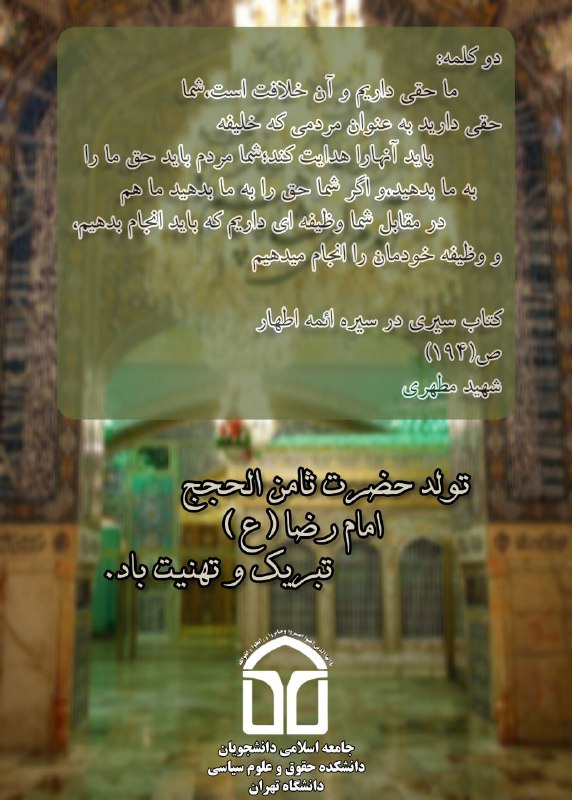 دو کلمه:
ما حقی داریم و آن خلافت است،شما
حقی دارید به عنوان مردمی که خلیفه
باید آنهارا هدایت کند؛شما مردم باید حق ما را
به ما بدهید،و اگر شما حق را به ما بدهید ما هم
در مقابل شما وظیفه ای داریم که باید انجام بدهیم،
و وظیفه خودمان را انجام میدهیم
کتاب سیری در سیره ائمه اطهار
ص(۱۹۴)
شهید مطهری
تولد حضرت ثامن الحجج
امام رضا (ع)
تبریک و تهنیت باد.
جامعه اسلامی دانشجویان
دانشکده حقوق و علوم سیاسی
دانشگاه تهران